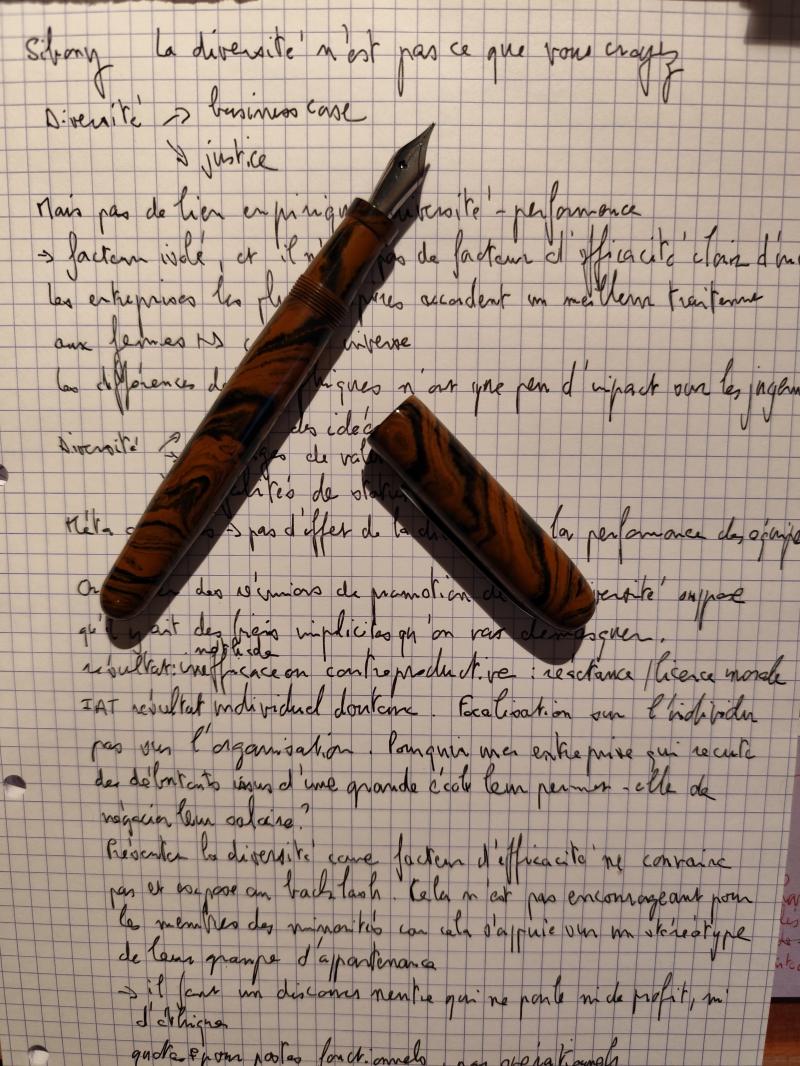 Sibony La diversité n'est pas ce que vous croyez
Diversité → business case
↘ justice
Mais pas de lien empirique diversité - performance
→ facteur isolé, et il n' pas de facteur d'efficacité clair
Les entreprises les accordent un meilleur traitement
aux femmes
Les différences n'ont que peu d'impact sur les
Diversité des idées
de
de
Méta → pas d'effet de la la performance des équipes
des réunions de promotion de diversité suppose
qu'il y ait des biais implicites qu'on va démasquer.
méthode
résultat: inefficace ou contreproductive : réactance / licence morale
IAT résultat individuel douteux. Focalisation sur l'individu
pas sur l'organisation. Pourquoi mon entreprise qui recrute
des débutants issus d'une grande école leur permet-elle de
négocier leur salaire?
Présenter la diversité comme facteur d'efficacité ne convainc
pas et expose au backlash. Cela n'est pas encourageant pour
les membres des minorités car cela s'appuie sur un stéréotype
de leur groupe d'appartenance
→ il faut un discours neutre qui ne parle ni de profit, ni
d'éthique
quotas pour postes fonctionnels, pas opérationnels